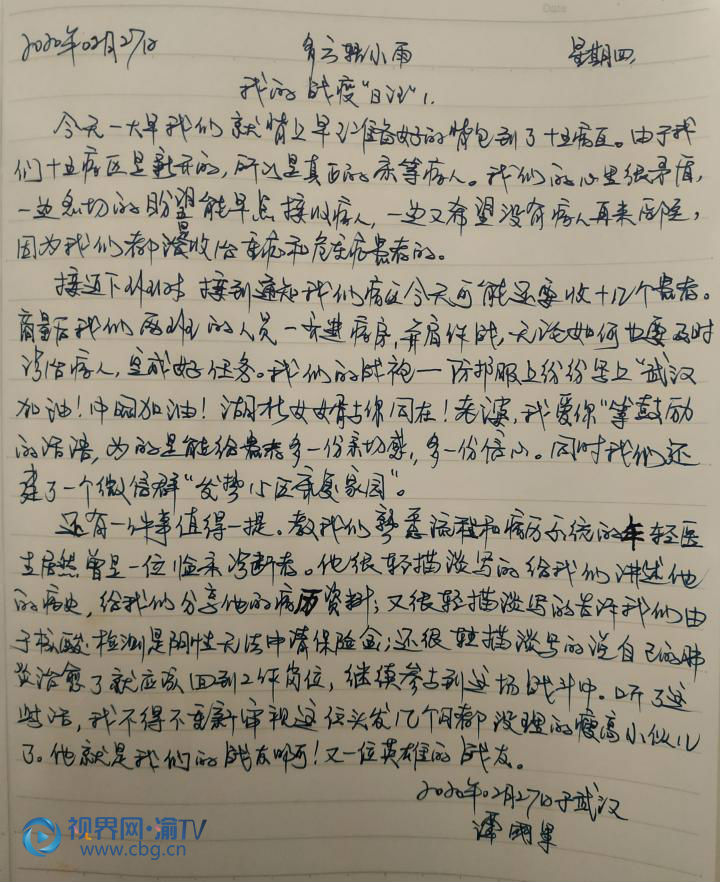 Date
2020年02月27日 多云转小雨 星期四
我的战疫"日记"1.
今天一大早我们就背上早已准备好的背包到了十五病区。由于我
们十五病区是新开的,所以是真正的亲等病人。我们的心里很矛盾,
一边急切的盼望能早点接收病人,一边又希望没有病人再来医院,
因为我们都是收治重症和危重症患者的。
接近下班时 接到通知我们病区今天可能还要收十几个患者。
商量后我们两班的人员一齐进病房,并肩作战,无论如何也要及时
诊治病人,完成好任务。我们的战袍一防护服上纷纷写上"武汉
加油!中国加油!湖北女女骨与你同在!老婆,我爱你"等鼓励
的话语,为的是能给患者多一份亲切感,多一份信心。同时我们还
建了一个微信群" 小区康复家园"。
还有一件事值得一提。教我们熟悉流程和病历系统的年轻医
生居然曾是一位临床诊断者。他很轻描淡写的给我们讲述他
的病史,给我们分享他的病历资料;又很轻描淡写的告诉我们由
于核酸检测是阴性无法申请保险金;还很轻描淡写的说自己的肺
炎治愈了就应该回到工作岗位,继续参与到这场战斗中。听了这
些话,我不得不重新审视这位头发几个月都没理的瘦高小伙儿
了。他就是我们的战友啊!又一位英雄的战友。
2020年02月27日于武汉
谭明
视界网·渝TV
www.cbg.cn